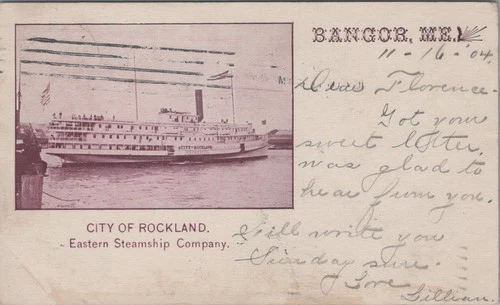 BANGOR, ME.
11-16-'04
Dear Florence-
Got your
sweet letter,
was glad to
hear from you.
Will write you
Sunday sure.
Love
Lillian.
CITY OF ROCKLAND
CITY OF ROCKLAND.
Eastern Steamship Company.